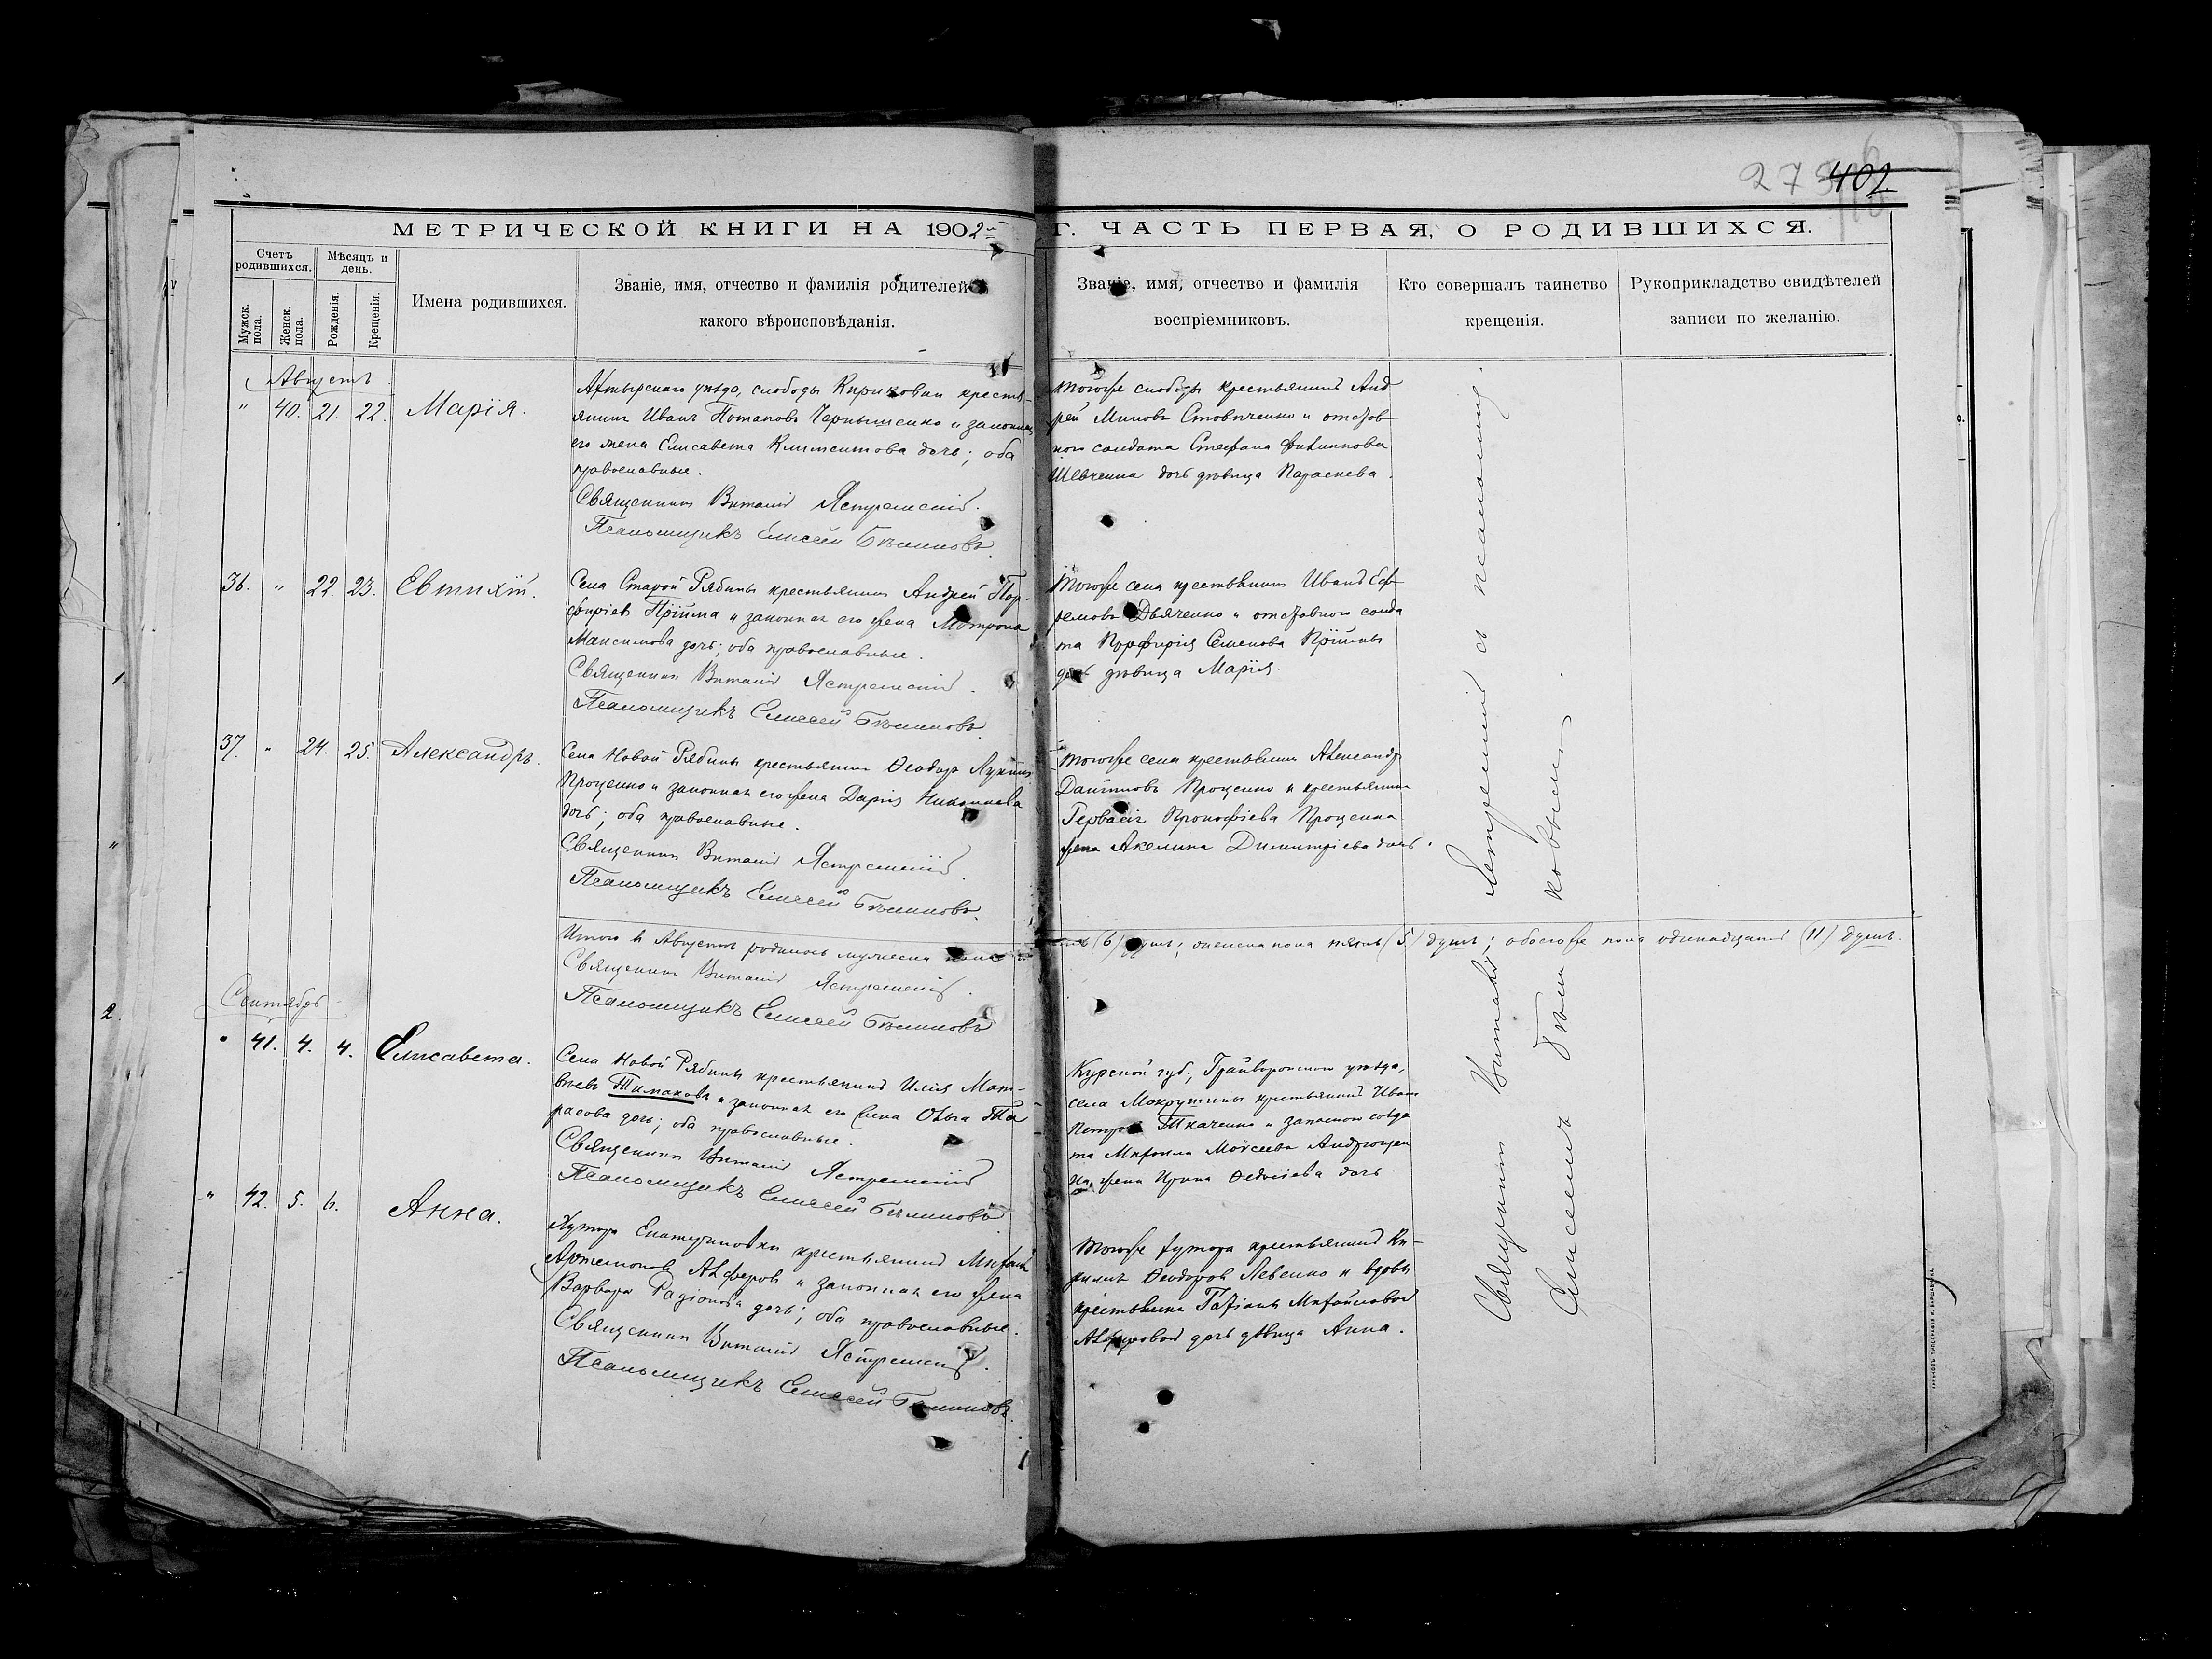 402
МЕТРИЧЕСКОЙ КНИГИ НА 1902 Г. ЧАСТЬ ПЕРВАЯ, О РОДИВШИХСЯ.
Счетъ родившихся.
Мѣсяцъ и день.
Мужск. пола.
Женск. пола.
Рожденія.
Крещенія.
Имена родившихся.
Званіе, имя, отчество и фамилія родителей
какого вѣроисповѣданія.
Званіе, имя, отчество и фамилія
воспріемниковъ.
Кто совершалъ таинство
крещенія.
Рукоприкладство свидѣтелей
записи по желанію.
Августъ
" 40. 21. 22. Марія.
Ахтырскаго уѣзда, слободы Кириковки кресть-
янинъ Иванъ Потаповъ Чернышенко и законная
его жена Елисавета Климентова дочь; оба
православные.
Священникъ Виталій Ястремскій.
Псаломщикъ Елисей Бѣликовъ.
тойже слободы крестьянинъ Анд-
рей Миновъ Стовпченко и отстав-
ного солдата Стефана Филиппова
Шевченка дочь дѣвица Параскева.
36. " 22. 23. Евтихій.
Села Старой Рябины крестьянинъ Андрей Пор-
фиріевъ Прійма и законная его жена Матрона
Максимова дочь; оба православные.
Священникъ Виталій Ястремскій.
Псаломщикъ Елисей Бѣликовъ.
тогоже села крестьянинъ Иванъ Еф-
ремовъ Дьяченко и отставного солда
та Порфирія Семенова Пріймы
дочь дѣвица Марія.
37. " 24. 25. Александръ.
Села Новой Рябины крестьянинъ Ѳеодоръ
Проценко и законная его жена Дарія
дочь; оба православные.
Священникъ Виталій Ястремскій.
Псаломщикъ Елисей Бѣликовъ.
тогоже села крестьянинъ Александръ
Даніиловъ Проценко и крестьянина
Гервасія Прокофіева Проценка
жена Акелина Димитріева дочь.
Итого въ Августѣ родилось мужеска пола (6) душъ; женска пола пять (5) душъ; обоегоже пола одинадцать (11) душъ.
Священникъ Виталій Ястремскій.
Псаломщикъ Елисей Бѣликовъ
Сентябрь
" 41. 4. 4. Елисавета.
Села Новой Рябины крестьянинъ Илія Мат-
вѣевъ Тимаковъ и законная его жена Ольга Та
расова дочь; оба православные.
Священникъ Виталій Ястремскій
Псаломщикъ Елисей Бѣликовъ
Курской губ., Грайворонскаго уѣзда,
села Мокрушины крестьянинъ Иванъ
Петровъ Ткаченко и запасного солда
та Михаила Моисеева Андрющен
ка, жена Ирина Ѳедосіева дочь.
" 42. 5. 6. Анна.
Хутора Екатериновки крестьянинъ Михаилъ
Артемоновъ Алферовъ и законная его жена
Варвара Радіонова дочь; оба православные.
Священникъ Виталій Ястремскій.
Псаломщикъ Елисей Бѣликовъ.
тогоже хутора крестьянинъ Ки-
риллъ Ѳеодоровъ Левенко и вдовы
крестьянки Татіаны Михайловой
Алферовой дочь дѣвица Анна.
Священникъ Виталій Ястремскій съ псаломщикомъ
Елисеемъ Бѣликовымъ.